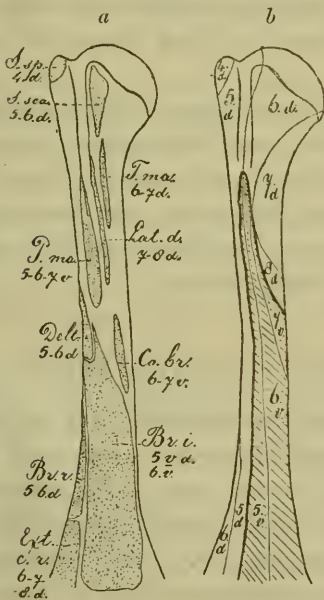 a
b
S. sp.
4. d.
S. sca.
5. 6. d.
T. ma.
6-7 d.
Lat. d.
7-8 d.
P. ma.
5-6-7 v
Delt.
5-6 d
Co. br.
6-7 v.
Br. i.
5 v d.
6. v.
Br. r.
5 6 d
Ext.
c. r.
6-7
-8. d.
4
d
5
d
6. d.
7
d
8
d
7
v.
6
v.
5
v.
5
d
6
d